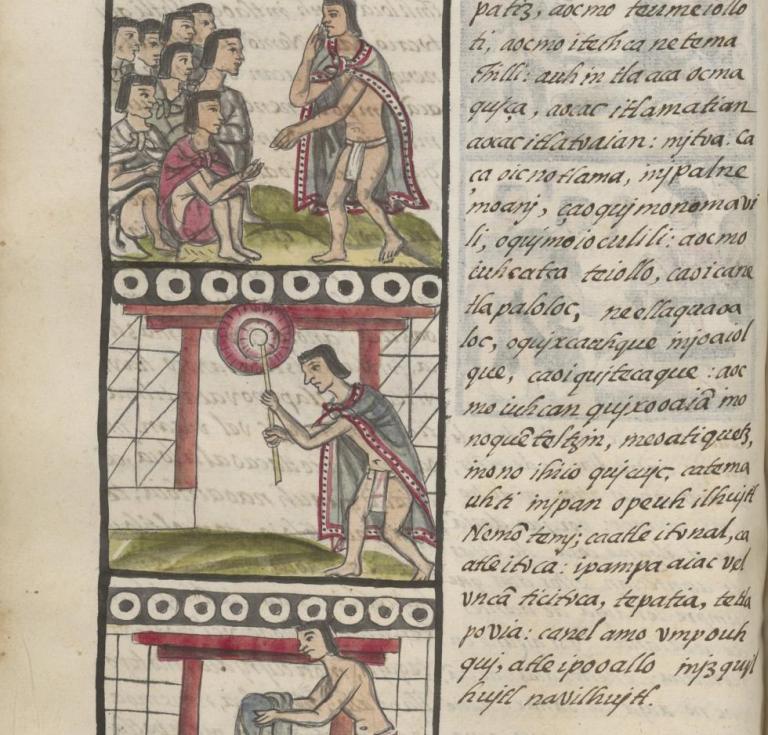 patiz, aocmo teumeiollo
ti, aocmo itechca netema
chilli: auh in tlaaca ocma
quiça, aocac itlamatian
aoxac itlatvaian: mitva: Ca
ca oicnotlama, inipalne
moani, çaoquimonomavi
li, oquimoioculili: aocmo
iuhcatca teiollo, caoicane
tlapaloloc, neellaquaoa
loc, oquixcauhque
que, caoiquitecaque: aoc
mo iuhcan quixooaiā mo
noquēteltzin, meoatiquetz,
inono ihiio quicuic, catema
uhti inipan opeuh ilhuitl
Nemōtemi; caatle itonal, ca
atle itvca: ipampa aiac vel
vncā ticitvca, tepatia, tetla
povia: canel amo vmpouh
qui, atle ipooallo inizquil
huitl navilhuitl.